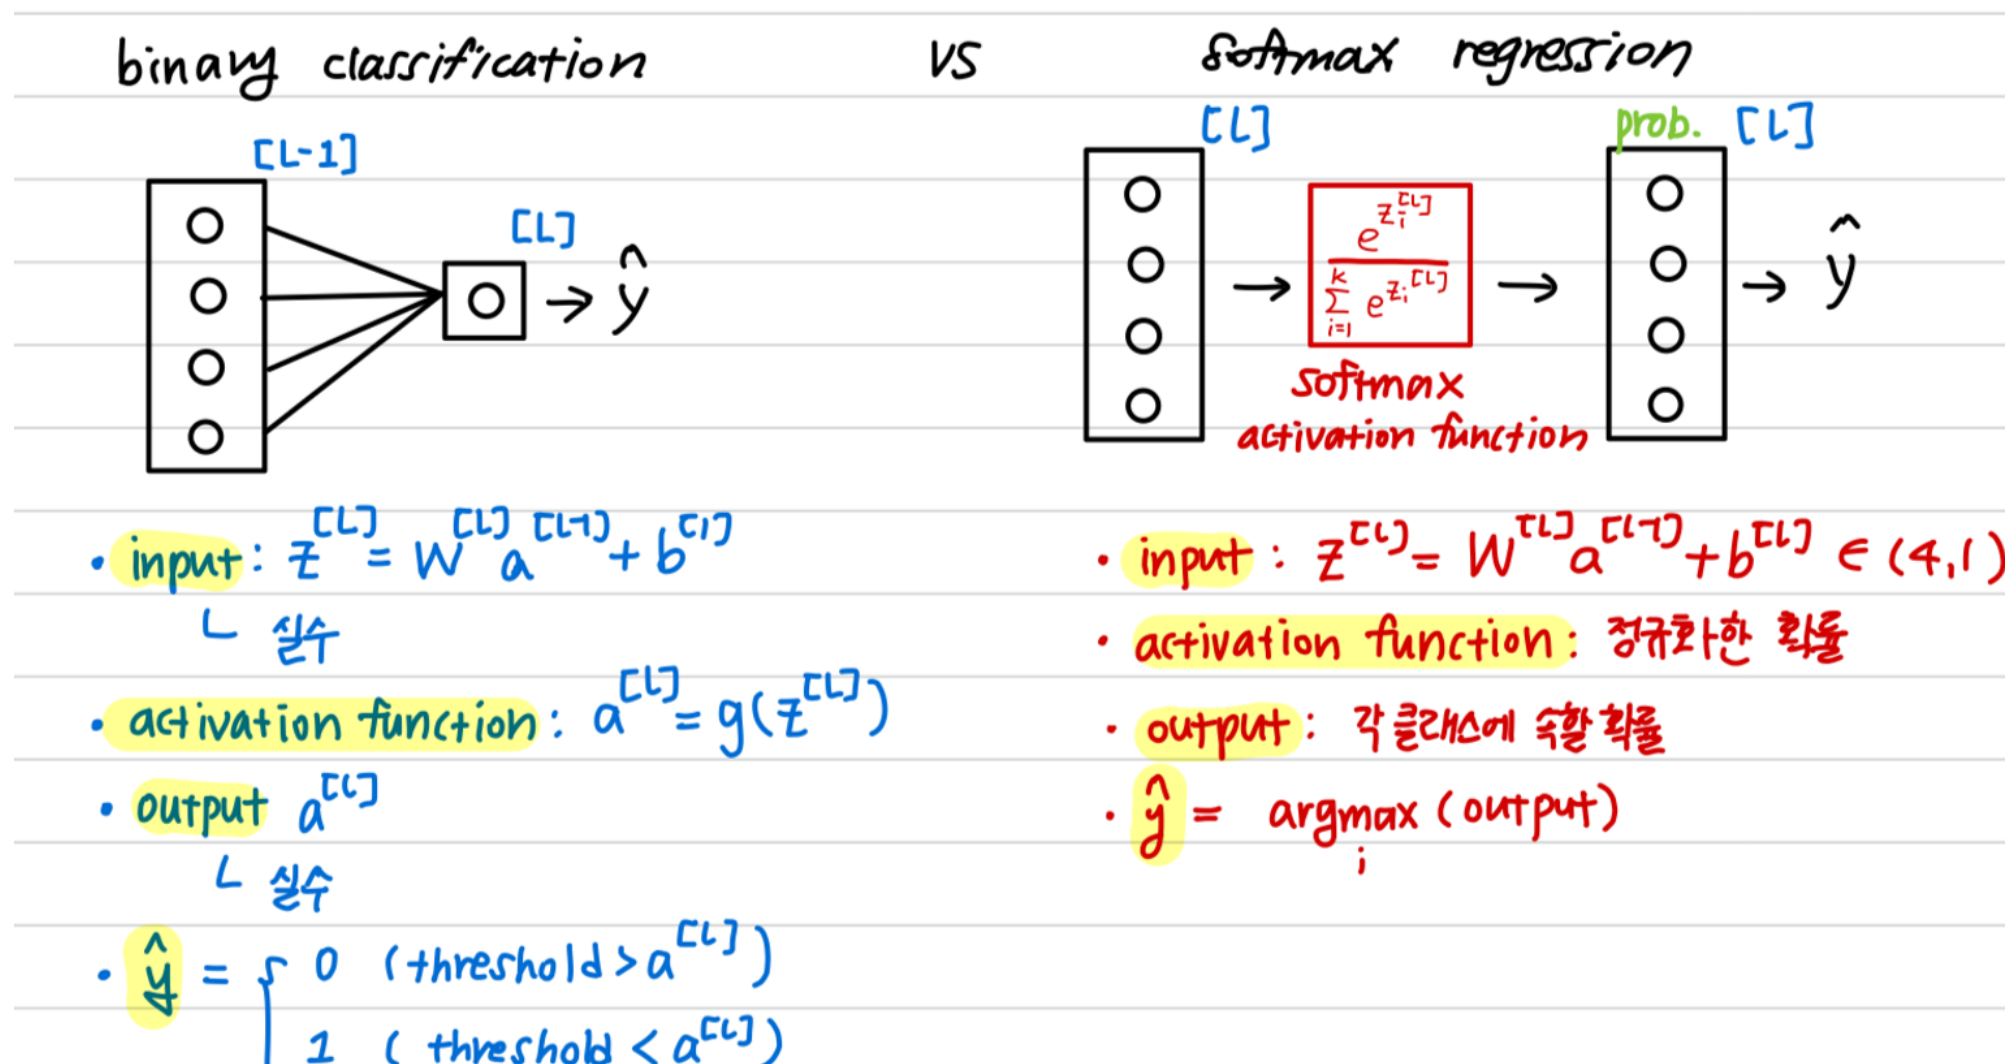 binary classification vs softmax regression
[L-1]
[L]
ŷ
[L]
e^{z_i^{[L]}}
Σ_{i=1}^{k} e^{z_i^{[L]}}
softmax
activation function
prob. [L]
ŷ
• input : z^{[L]} = W^{[L]} a^{[L-1]} + b^{[1]}
└ 실수
• activation function : a^{[L]} = g(z^{[L]})
• output a^{[L]}
└ 실수
• ŷ = { 0 (threshold > a^{[L]})
1 (threshold < a^{[L]})
• input : z^{[L]} = W^{[L]} a^{[L-1]} + b^{[L]} ∈ (4,1)
• activation function : 정규화한 확률
• output : 각 클래스에 속할 확률
• ŷ = argmax (output)
i